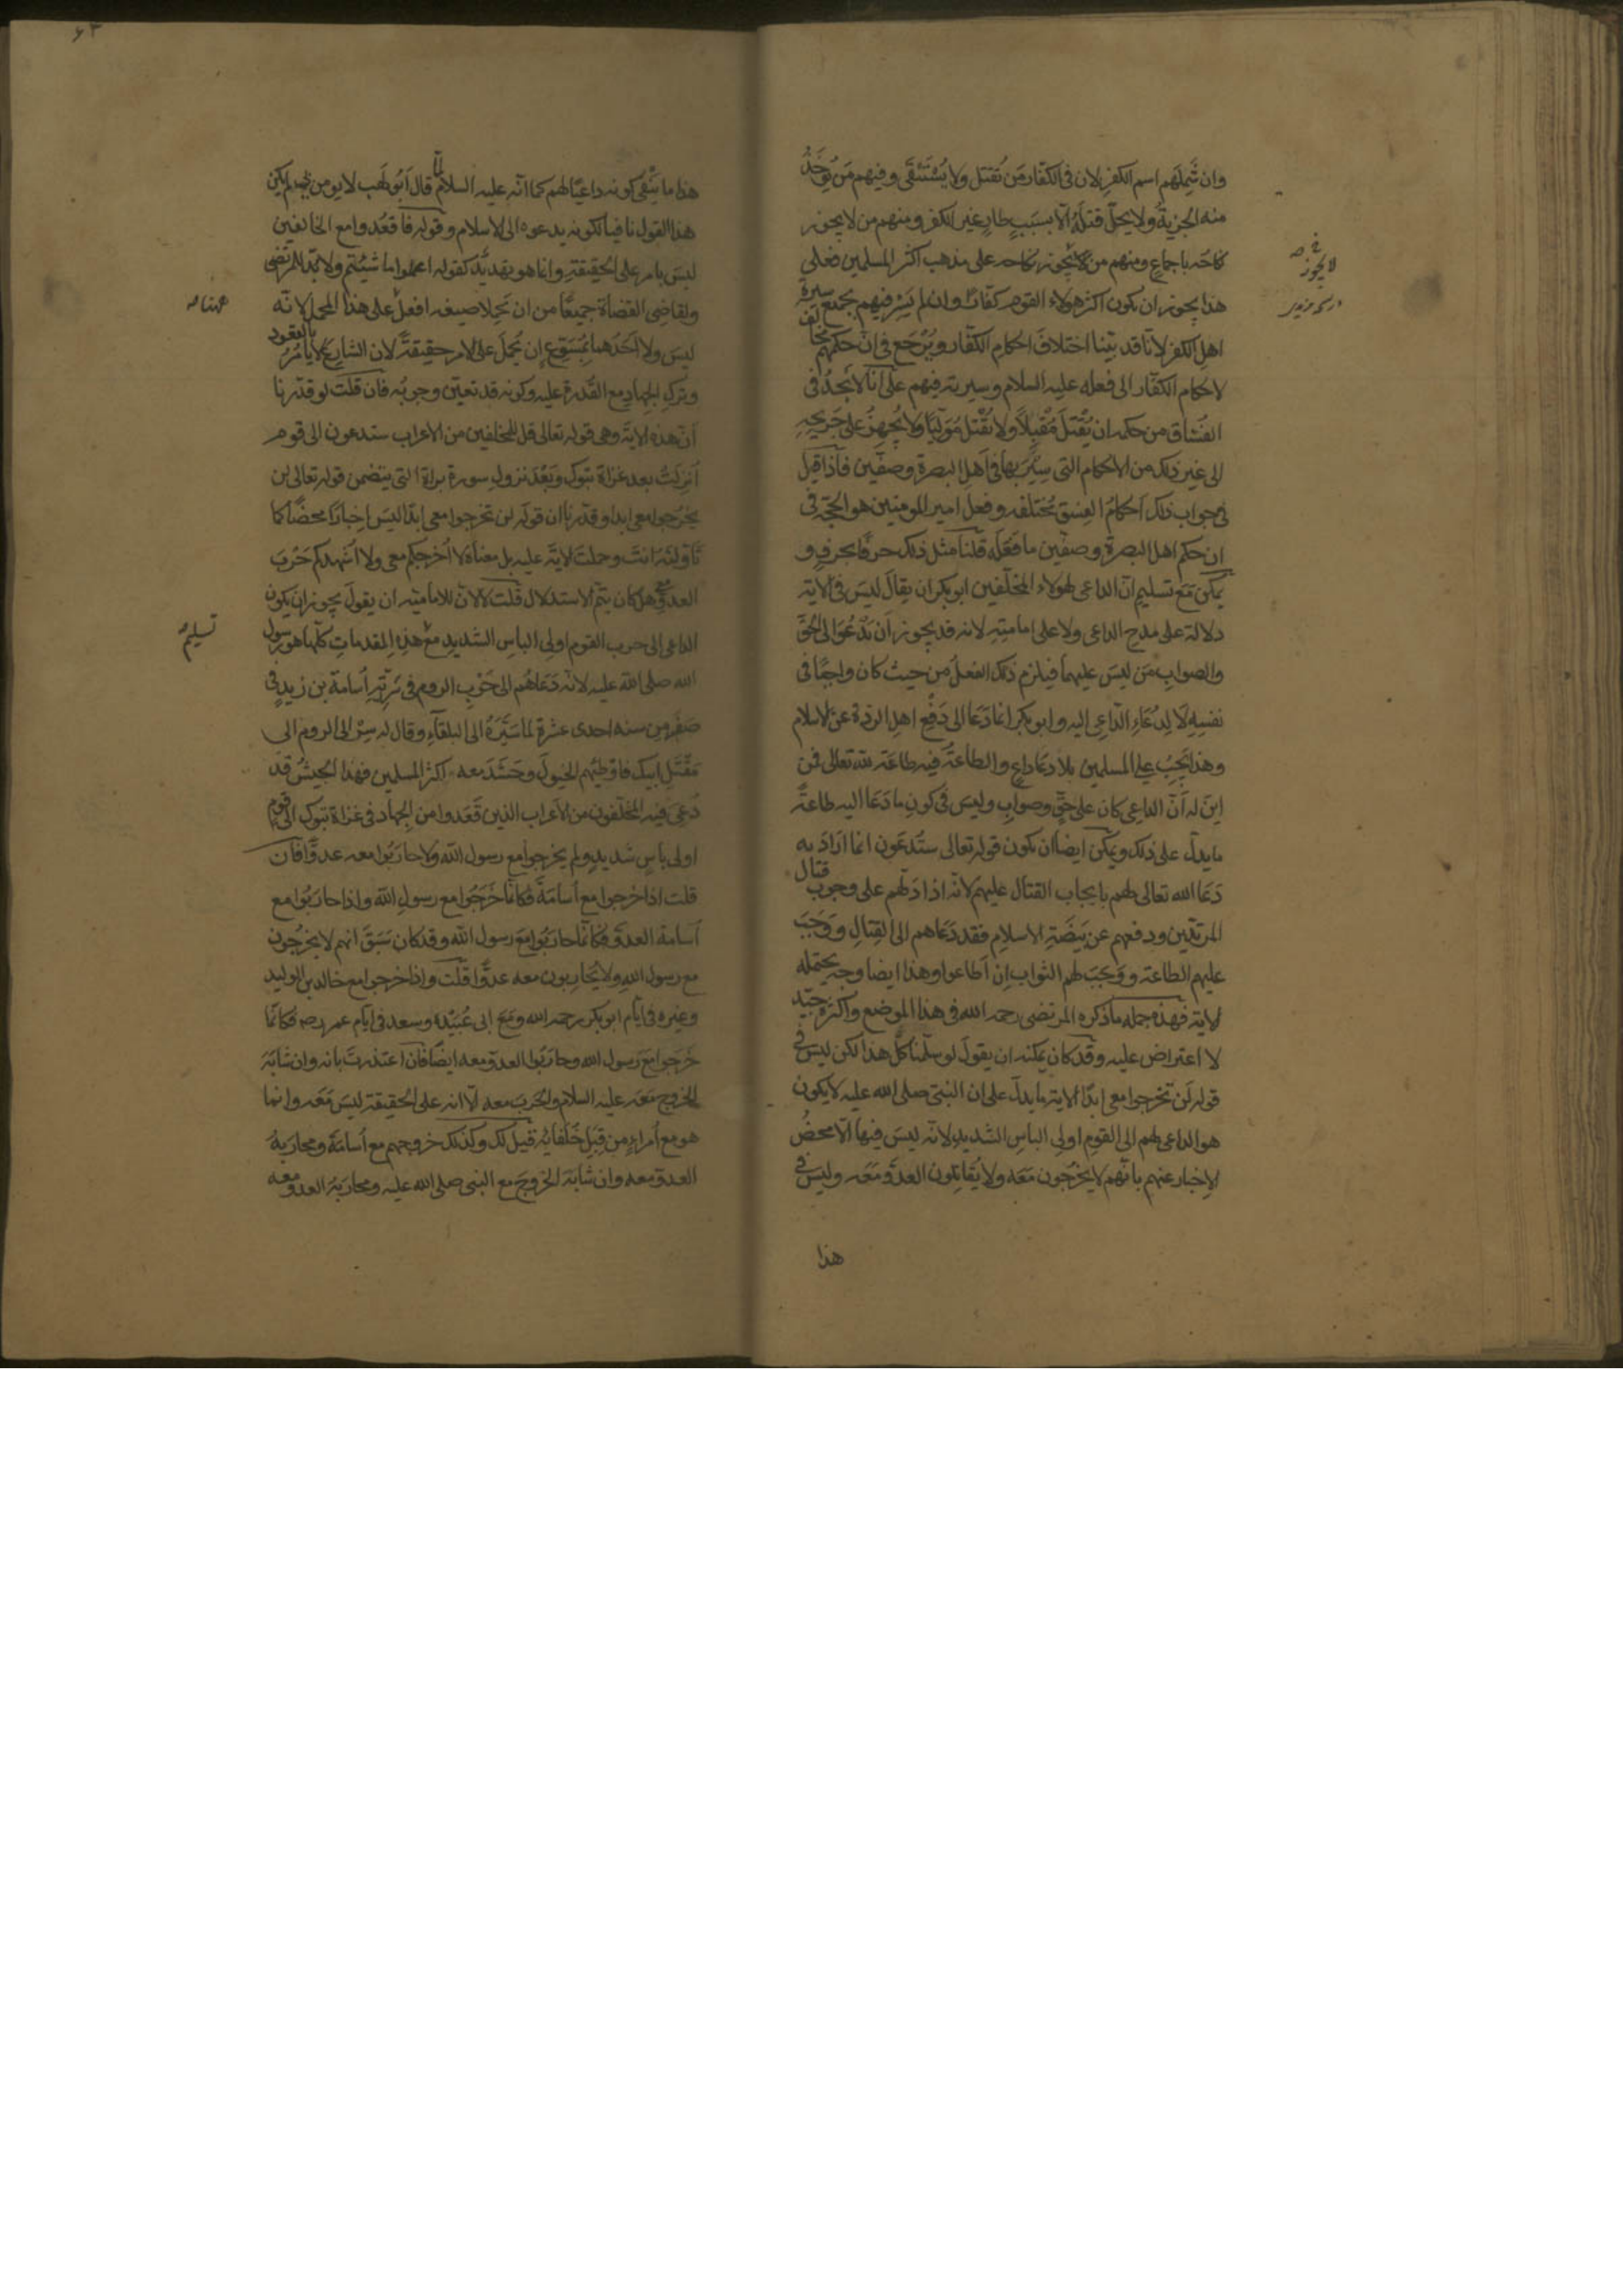 وان شَمِلَهم اسم الكفر لان فى الكفّار مَن يُقتل ولا يُسْتَبْقَى وفيهم مَن تُوخَذُ
منه الجزيةُ ولا يحلّ قتلهُ الّا بسَبَبٍ طارٍ غير الكفر ومنهم من لا يجوز
نكاحه باجماع ومنهم من يجوز نكاحه على مذهب اكثر المسلمين فعلى
هذا يجوز ان يكون اكثر هولاء القوم كفّارًا وان لم يَسِرْ فيهم بجميع سيرةِ
اهل الكفر لانّا قد بيّنا اختلافَ احكام الكفّار ويُرْجَع فى انّ حكمهم مخالف
لاحكام الكفّار الى فعله عليه السلام وسيرته فيهم على انّا لا نَجِدُ فى
الفُسّاق مَن حكمه ان يُقْتَلَ مُقْبِلًا ولا يُقْتَل مُوَلّيًا ولا يُجْهَزُ على جَرِيحِهِ
الى غير ذلك من الاحكام التى سِيْرَ بها فى اَهلِ البصرةِ وصفّين فاذا قيل
فى جواب ذلك اَحكامُ الفِسْق مُختلفه وفعل امير المومنين هو الحجّة فى
ان حكم اهل البصرة وصفّين ما فَعَلَه قلنا مثل ذلك حرفًا بحرفٍ و
يمكن مَعَ تسليم انّ الداعى لهولاء المخلّفين ابو بكر ان يقالَ ليسَ فى الآية
دلالة على مدح الداعى ولا على امامتِهِ لانه قد يجوز اَن يَدْعُوَ الى الحقِّ
والصوابِ مَن ليسَ عليهما فيلزم ذلك الفعلُ من حيث كان واجبًا فى
نفسِهِ لَا لِدُعَاءِ الدّاعى اليه وابو بكر انما دَعَا الى دَفْعِ اهلِ الردّة عن الاسلام
وهذا يَجِبُ على المسلمين بلا دعاء داعٍ والطاعةُ فيه طاعَة لله تعالى فمن
اينَ له اَنّ الداعى كان على حَقٍّ وصوابٍ وليسَ فى كونِ ما دَعَا اليه طاعةً
ما يدلّ على ذلك ويمكن ايضا ان يكون قوله تعالى ستُدعَون انما ارَادَ به
دَعَا الله تعالى لهم بايجاب القتال عليهم لانّه اذا دَلّهم على وجوبِ قتال
المرتدّين ودفعهم عن بَيضَةِ الاسلامِ فقد دَعَاهم الى القِتالِ ووَجَبَ
عليهم الطاعة ووَجَبَ لهم الثواب اِن اَطاعوا وهذا ايضا وجه تحتمله
الاية فهذه جمله ما ذكره المرتضى رحمه الله فى هذا الموضع واكثرهُ جيّد
لا اعتراض عليه وقد كان يمكنه ان يقولَ لو سلّمنا كلّ هذا لكن ليسَ فى
قوله لَن تخرجوا معى ابدًا الآية ما يدلّ على ان النبى صلى الله عليه لا يكون
هو الداعى لهم الى القومِ اولى الباسِ الشديدِ لانّه ليسَ فيها الّا محضُ
الاِخبار عنهم بانّهم لا يخرُجون مَعَه ولا يُقاتِلون العدوَّ مَعَه وليسَ فى
هذا
لا يجوز
٤٣
هذا ما ينْفِى كونه داعيًا لهم كما انّه عليه السلام لمّا قال اَبُو لهب لا يومن بى لم يكن
هذا القول نافيًا لكونه يدعوه الى الاسلام وقوله فاقعُدوا مع الخالفين
ليسَ بامر على الحقيقةِ وانما هو تهديد كقوله اعملوا ما شئتم ولا بدّ للمرتضى
ولقاضى القضاة جميعًا من ان يَحمِلا صيغه افعلْ على هذا المحمل لانّه
ليسَ ولا اَحَدُهما بمُسَوّغٍ ان يُحْمَلَ على الامر حقيقةً لان الشارع لا يامُرُ بالقعود
وتركِ الجهاد مع القدرة عليه وكونه قد تعيّن وجوبُه فان قلت لو قدّرنا
انّ هذه الاية وهى قوله تعالى قل للمخلّفين من الاعراب ستدعون الى قوم
اُنزِلَتْ بعد غزاة تبوك وبَعْدَ نزولِ سورة براة التى يتضمن قوله تعالى لن
يخرجوا معى ابدا وقدّرنا ان قوله لن تخرجوا معى ابدًا ليسَ اِخبارًا محضًا كما
تاَوّلتَه اَنتَ وحملتَ الايةَ عليه بل معناهُ لا اُخرِجكم معى ولا اُشهدكم حَرْبَ
العدوّ هل كان يتمّ الاستدلال قلت لا لانّ للاماميّه ان يقولَ يجوز ان يكون
الداعى الى حرب القوم اولى الباسِ الشديدِ مع هذه المقدماتِ كلّها هو رسول
الله صلى الله عليه لانّه دَعَاهُم الى حَرْب الروم فى سَريّةِ اُسامة بن زيدٍ فى
صَفَر من سنه احدى عشرة لما سَيّرَهُ الى البلقاء وقال له سِر الى الروم الى
مَقْتَلِ ابيك فاوطِئهم الخيولَ وحَشَدَ معه اكثر المسلمين فهذا الجيشُ قد
دُعىَ فيه المخلّفون من الاعراب الذين قَعَدوا من الجهاد فى غزاة تبوك الى قومٍ
اولى باسٍ شديدٍ ولم يخرجوا مع رسول الله ولا حارَبُوا معه عدوًّا فان
قلت اذا خرجوا مع اُسامَةَ فكانّما خَرَجُوا مع رسول الله واذا حارَبُوا مع
اُسامة العدوَّ فكانّما حارَبُوا مَع رسول الله وقد كان سَبَقَ انّهم لا يخرجُون
مع رسول الله ولا يحاربون معه عدوًّا قلت واذا خرجوا مع خالد بن الوليد
وغيره فى ايّام ابو بكر رحمه الله ومَعَ ابى عُبَيْدة وسعد فى ايام عمر رضه فكانّما
خَرَجوا مَعَ رسول الله وحارَبُوا العدوّ معه ايضًا فان اعتذرتَ بانه وان شابَهَ
الخروج مَعَه عليه السلام والحَرب معه الّا انه على الحقيقة ليسَ مَعَه وانما
هو مع اُمراءٍ من قِبَلِ خُلَفائِه قيل لك وكذلك خروجهم مع اُسامة ومحاربةُ
العدوّ معه وان شابَهَ الخروجَ مع النبى صلى الله عليه ومحاربةَ العدوّ معه
تسليم